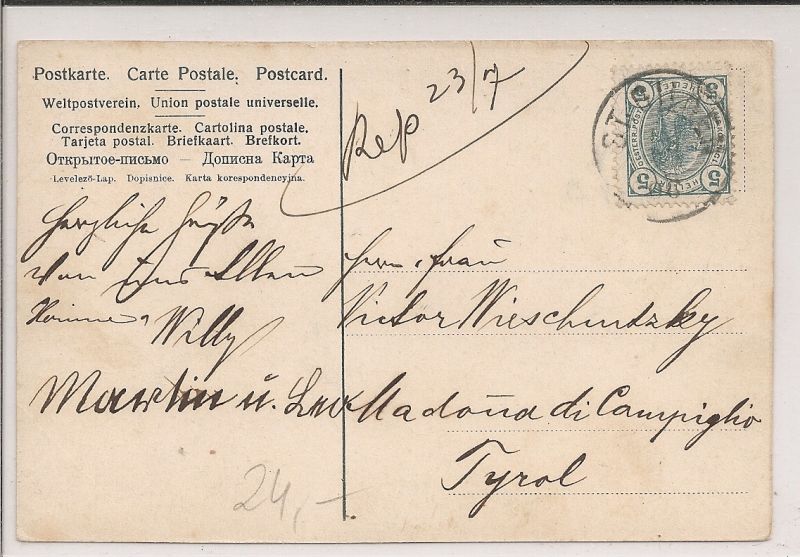 Postkarte. Carte Postale. Postcard.
Weltpostverein. Union postale universelle.
Correspondenzkarte. Cartolina postale.
Tarjeta postal. Briefkaart. Brefkort.
Открытое-письмо — Дописна Карта
Levelező-Lap. Dopisnice. Karta korespondencyjna.
Rep 23/7
5 5
5 5
Herzliche Grüße
von uns Allen
Willy
Martin u.
Herrn, Frau
Victor Wieschnitzky
Madoña di Campiglio
Tyrol
24,-